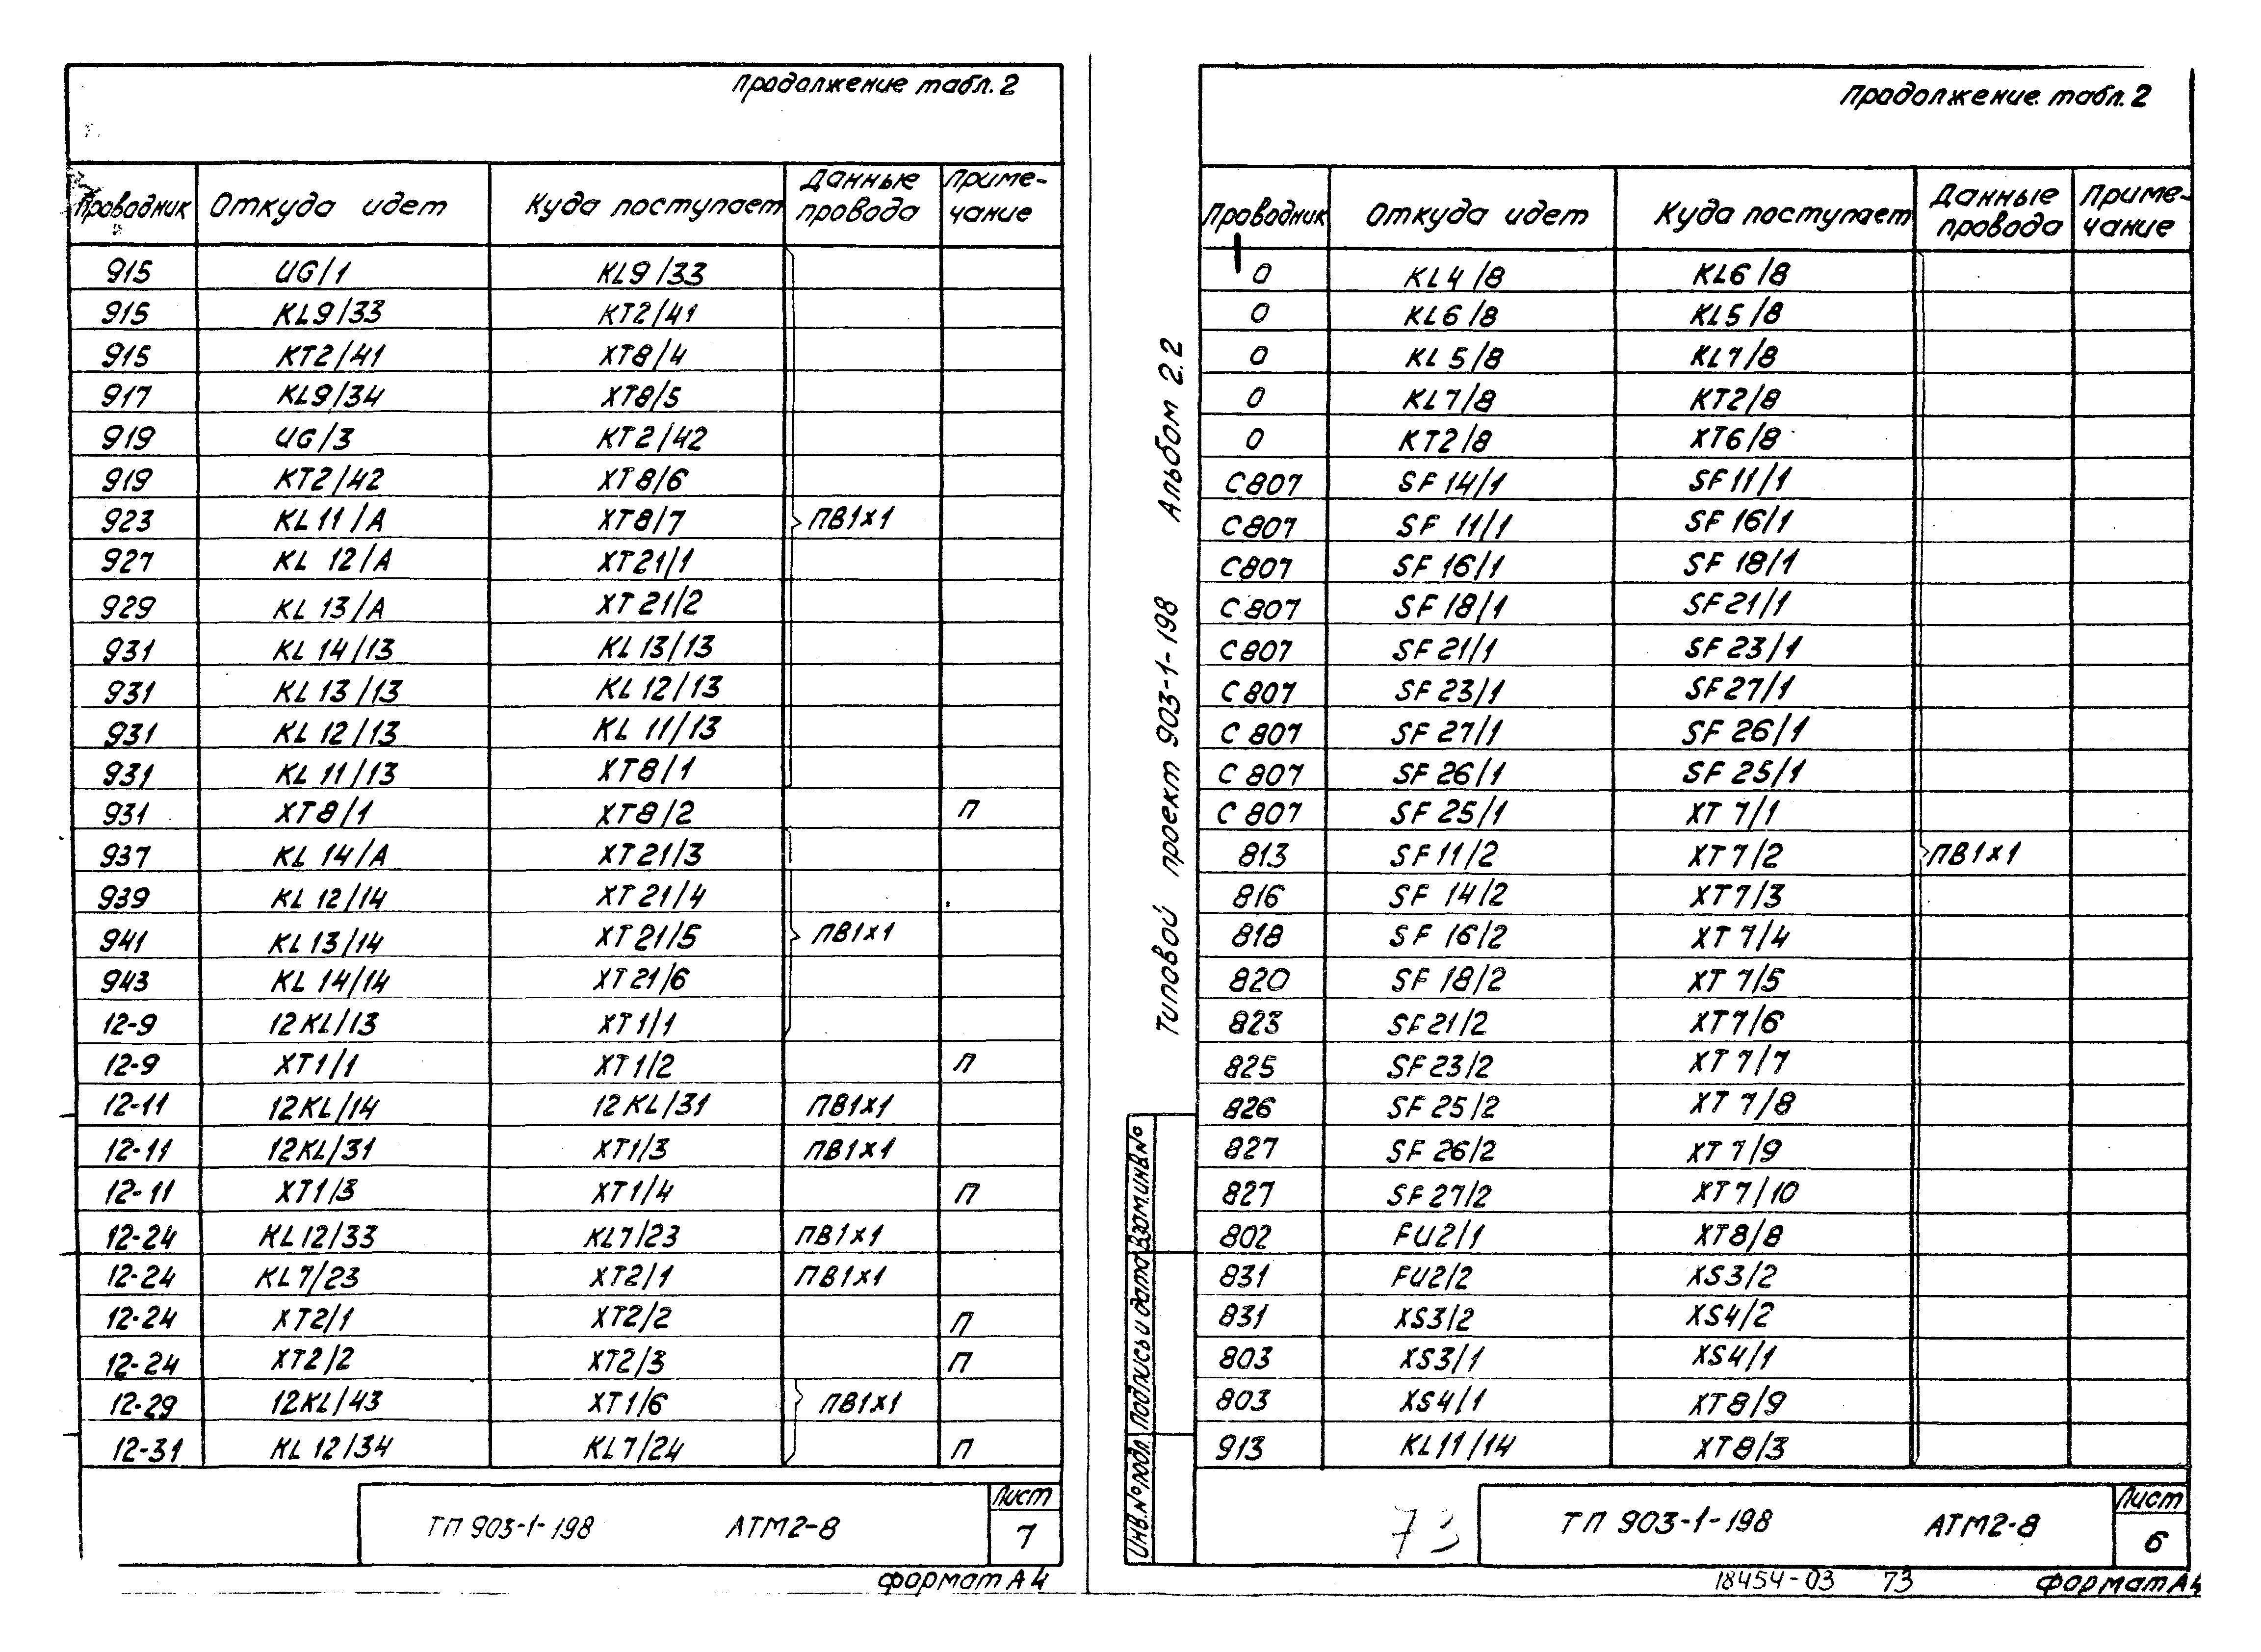 Продолжение табл. 2
Проводник Откуда идет Куда поступает Данные провода Приме-чание
915 UG/1 KL9/33
915 KL9/33 KT2/41
915 KT2/41 XT8/4
917 KL9/34 XT8/5
919 UG/3 KT2/42
919 KT2/42 XT8/6
923 KL11/A XT8/7 ПВ1х1
927 KL 12/A XT21/1
929 KL 13/A XT21/2
931 KL 14/13 KL 13/13
931 KL 13/13 KL 12/13
931 KL 12/13 KL 11/13
931 KL 11/13 XT8/1
931 XT8/1 XT8/2 П
937 KL 14/A XT21/3
939 KL 12/14 XT21/4
941 KL13/14 XT21/5 ПВ1х1
943 KL 14/14 XT21/6
12-9 12KL/13 XT1/1
12-9 XT1/1 XT1/2 П
12-11 12KL/14 12KL/31 ПВ1х1
12-11 12KL/31 XT1/3 ПВ1х1
12-11 XT1/3 XT1/4 П
12-24 KL12/33 KL7/23 ПВ1х1
12-24 KL7/23 XT2/1 ПВ1х1
12-24 XT2/1 XT2/2 П
12-24 XT2/2 XT2/3 П
12-29 12KL/43 XT1/6 ПВ1х1
12-31 KL 12/34 KL7/24 П
ТП 903-1-198 АТМ2-8 Лист 7
формат А4
Продолжение табл. 2
Проводник Откуда идет Куда поступает Данные провода Приме-чание
0 KL4/8 KL6/8
0 KL6/8 KL5/8
0 KL5/8 KL7/8
0 KL7/8 KT2/8
0 KT2/8 XT6/8
C807 SF14/1 SF11/1
C807 SF 11/1 SF 16/1
C807 SF 16/1 SF 18/1
C807 SF 18/1 SF21/1
C807 SF 21/1 SF 23/1
C807 SF 23/1 SF27/1
C 807 SF 27/1 SF 26/1
C 807 SF 26/1 SF 25/1
C 807 SF 25/1 XT 7/1
813 SF11/2 XT7/2 ПВ1х1
816 SF 14/2 XT7/3
818 SF 16/2 XT 7/4
820 SF 18/2 XT 7/5
823 SF21/2 XT7/6
825 SF23/2 XT 7/7
826 SF 25/2 XT 7/8
827 SF 26/2 XT 7/9
827 SF27/2 XT7/10
802 FU2/1 XT8/8
831 FU2/2 XS3/2
831 XS3/2 XS4/2
803 XS3/1 XS4/1
803 XS4/1 XT8/9
913 KL11/14 XT8/3
Типовой проект 903-1-198 Альбом 2.2
Инв.№подл. Подпись и дата Взам.инв№
73
ТП 903-1-198 АТМ2-8 Лист 6
18454-03 73 формат А4